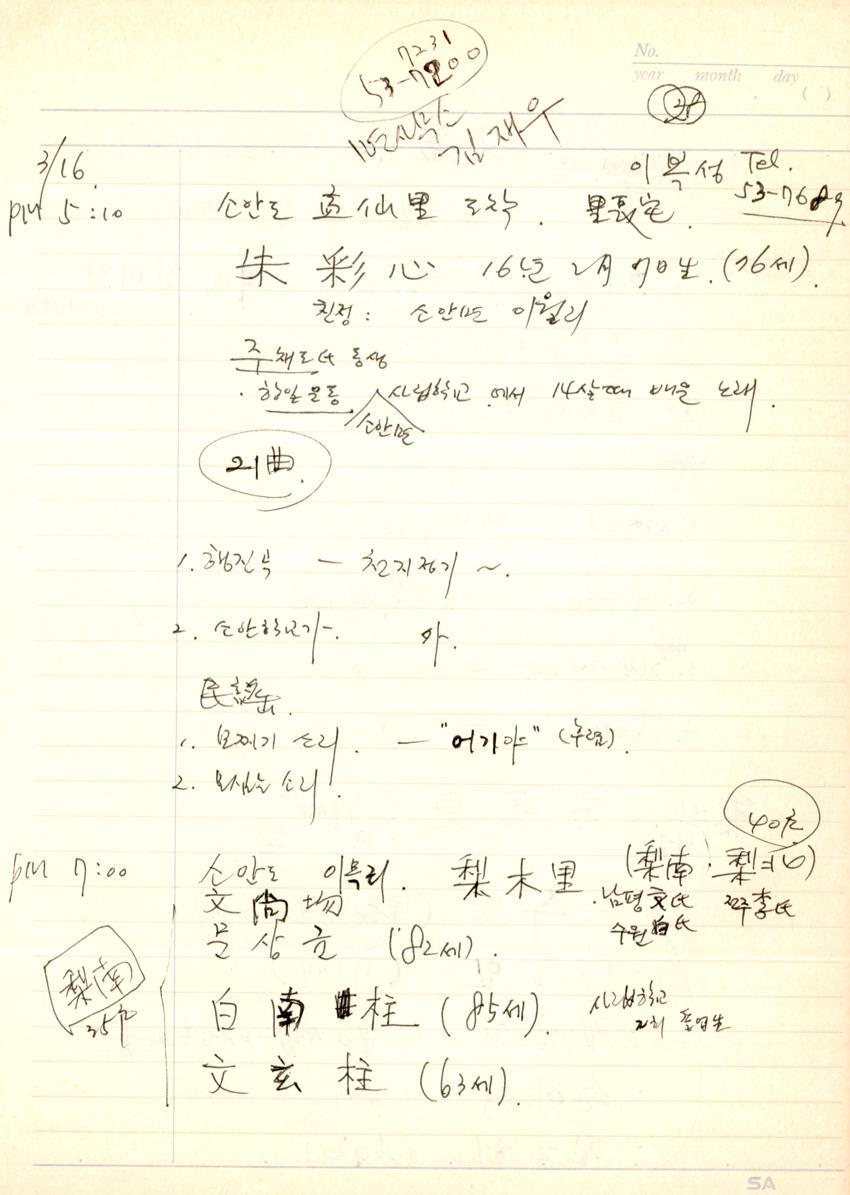 7231
53-7200
면사무소
김재우
No.
year month day
( )
28
3/16.
이복성 Tel.
53-7689
pm 5:10 소안도 孟仙里 도착. 里長宅.
朱彩心 16年 2月 7日生. (76세).
친정: 소안면 이월리
주채도氏 동생
· 항일운동 소안면 사립학교에서 14살때 배운 노래.
21曲.
1. 행진곡 — 천지정기 ~.
2. 소안학교가-.
民謠.
1. 모찌기 소리. — "어기야" (후렴).
2. 모심는 소리.
40호
pm 7:00 소안도 이목리. 梨木里 (梨南·梨北)
·남평 文氏 전주 李氏
수원 白氏
文尙
문상 (82세).
梨南
35戶
白南柱 (85세). 사립학교
2회 졸업생
文玄柱 (63세).
SA